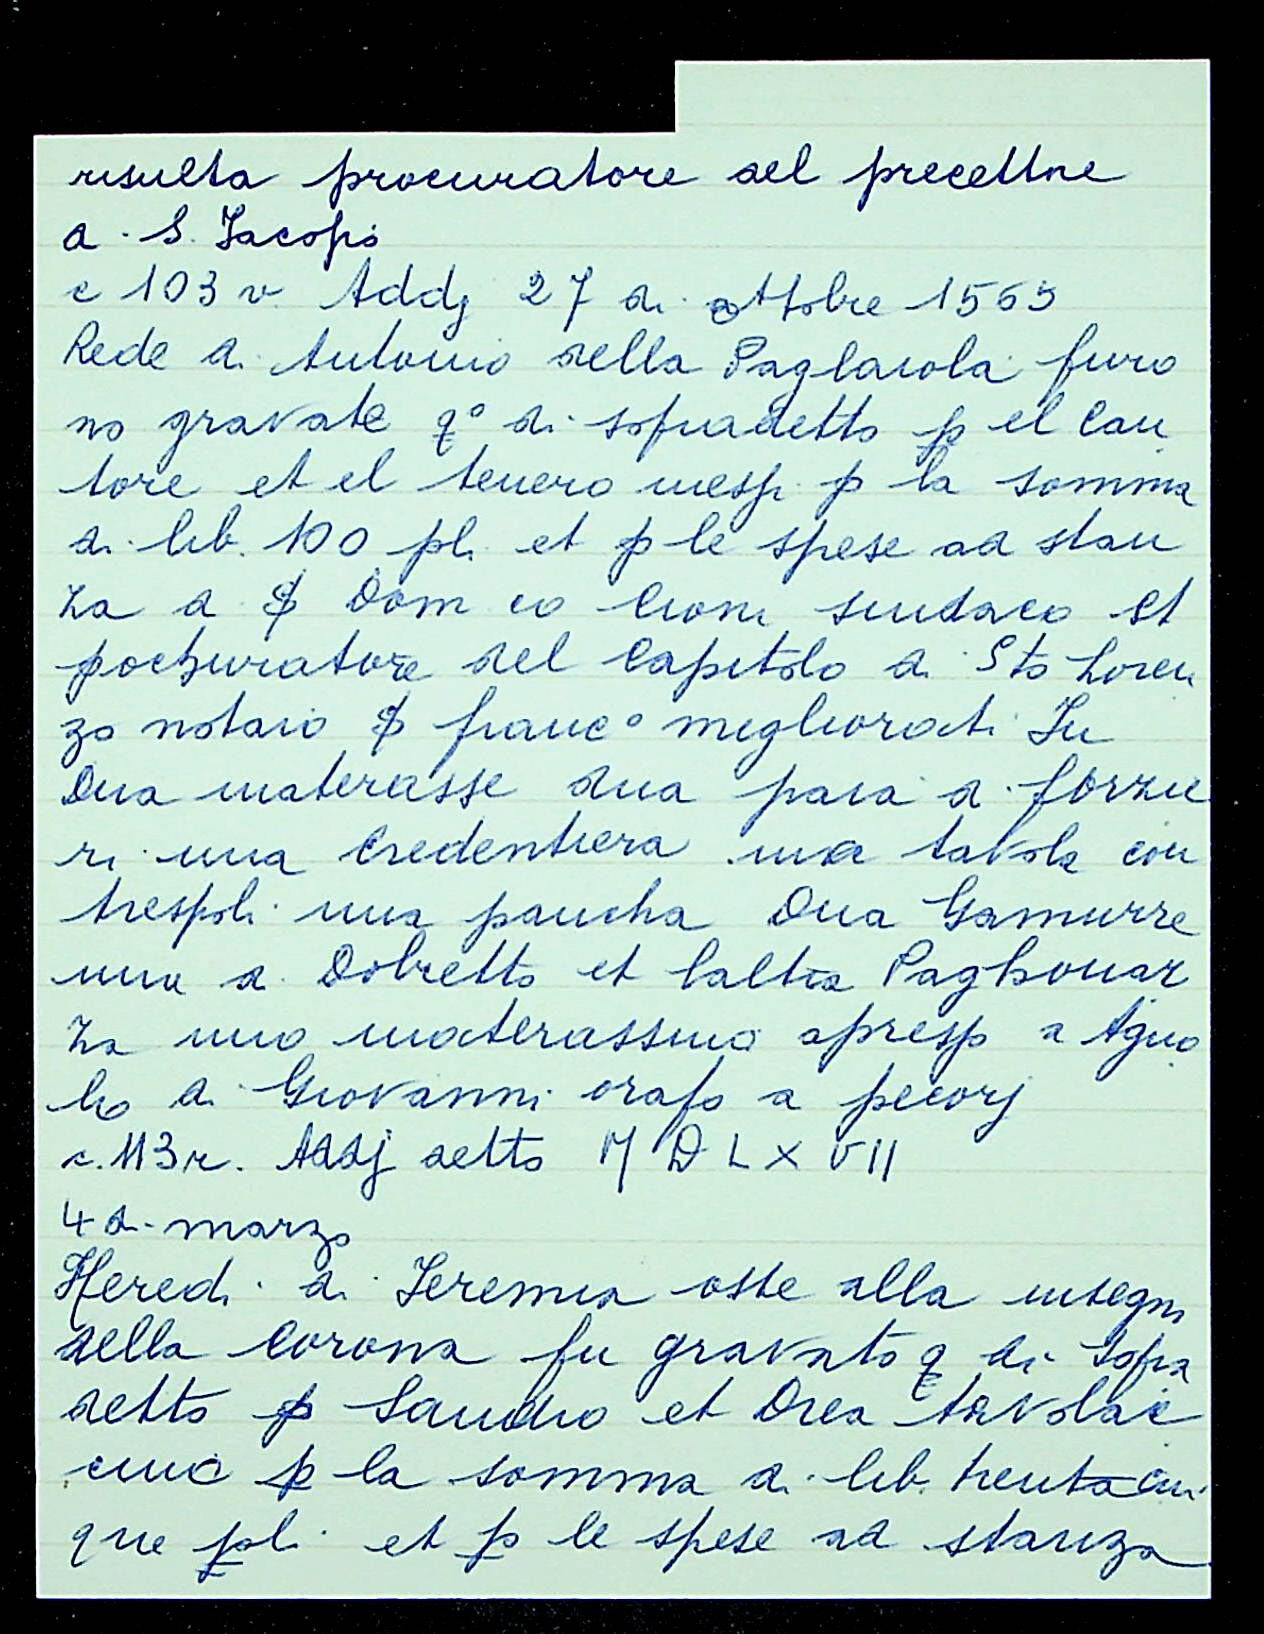 risulta procuratore del precettore
a S. Jacopo
c 103 v Addj 27 di ottobre 1565
Rede di Antonio della Paglaiola furo
no gravate q° di sopradetto p el Can
tore et el tenero mesp. p la somma
di lib. 100 pli et p le spese ad stan
za di $ Dom co Cioni sindaco et
pochuratore del Capitolo di Sto Loren
zo notaio $ franc° migliorati In
Dua materasse dua para di forzie
ri una credentiera una tavola con
trespoli una pancha Dua Gamurre
una di Dobretto et laltra Paghonaz
za uno materassino apresso a Agno
lo di Giovanni orafo a pecorj
c. 113 r. Addj detto M D L X VII
4 di marzo
Heredi di Jeremia oste alla insegna
della Corona fu gravato q di sopra
detto p Sandro et Drea tavolac
cino p la somma di lib. trentacin
que pli et p le spese ad stanza